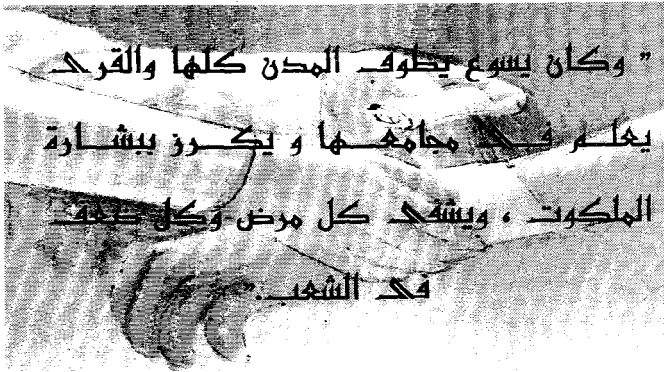 " وكان يسوع يطوف المدن كلها والقرى
يعلم فى مجامعها و يكرز ببشارة
الملكوت ، ويشفى كل مرض وكل ضعف
فى الشعب ."